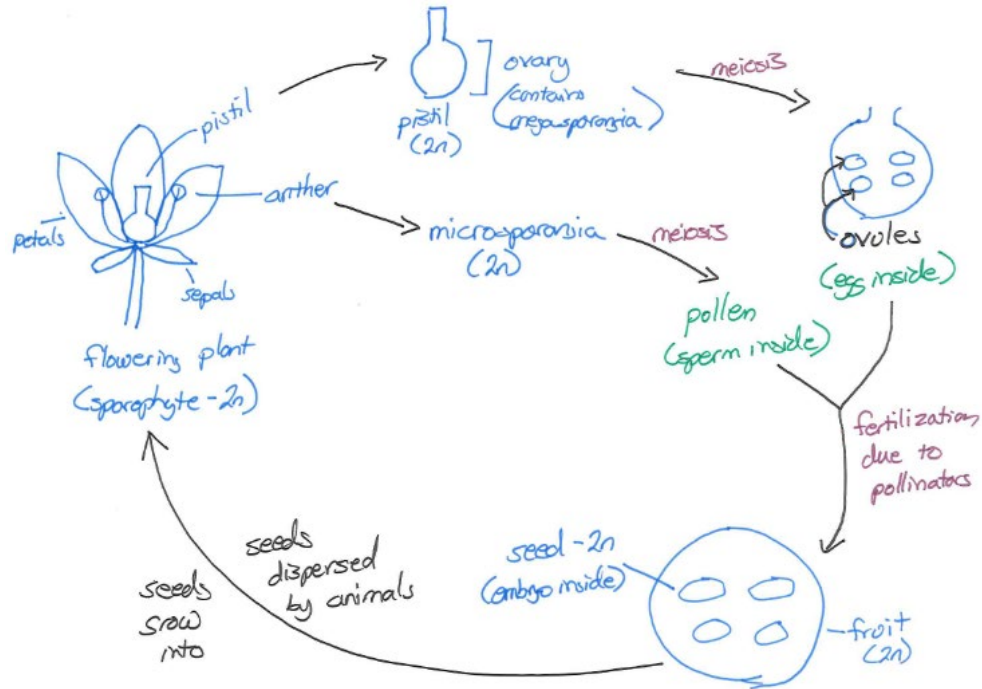 pistil
anther
petals
sepals
flowering plant
(sporophyte - 2n)
pistil
(2n)
ovary
(contains
megasporangia)
meiosis
microsporangia
(2n)
meiosis
pollen
(sperm inside)
ovules
(egg inside)
fertilization
due to
pollinators
seed - 2n
(embryo inside)
fruit
(2n)
seeds
dispersed
by animals
seeds
grow
into